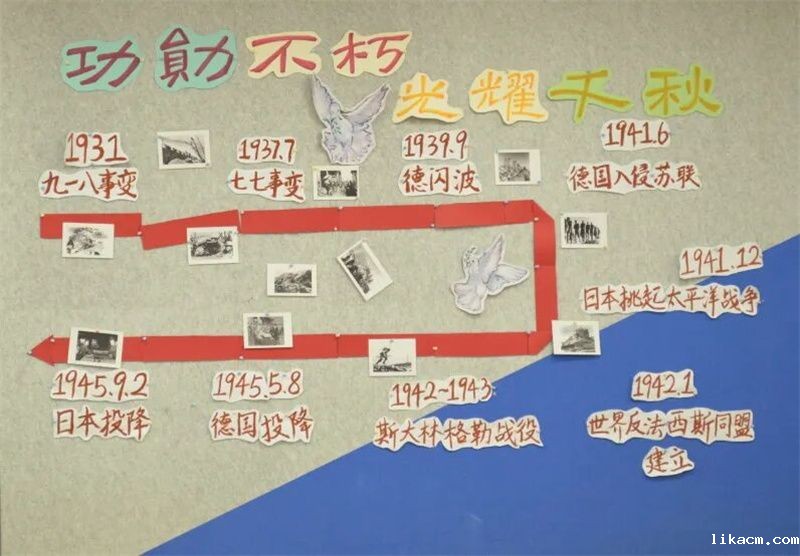 功勋不朽
光耀千秋
1931
九一八事变
1937.7
七七事变
1939.9
德闪波
1941.6
德国入侵苏联
1941.12
日本挑起太平洋战争
1942.1
世界反法西斯同盟
建立
1942~1943
斯大林格勒战役
1945.5.8
德国投降
1945.9.2
日本投降
likacm.com